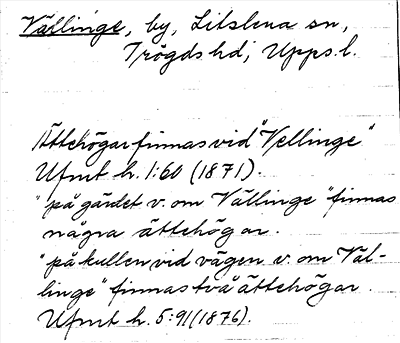 Vällinge, by, Litslena sn,
Trögds hd, Upps. l.
Ättehögar finnas vid "Vellinge"
Ufmt h. 1:60 (1871).
"på gärdet v. om Vällinge" finnas
några ättehögar.
"på kullen vid vägen v. om Väl-
linge" finnas två ättehögar.
Ufmt h. 5:91 (1876).